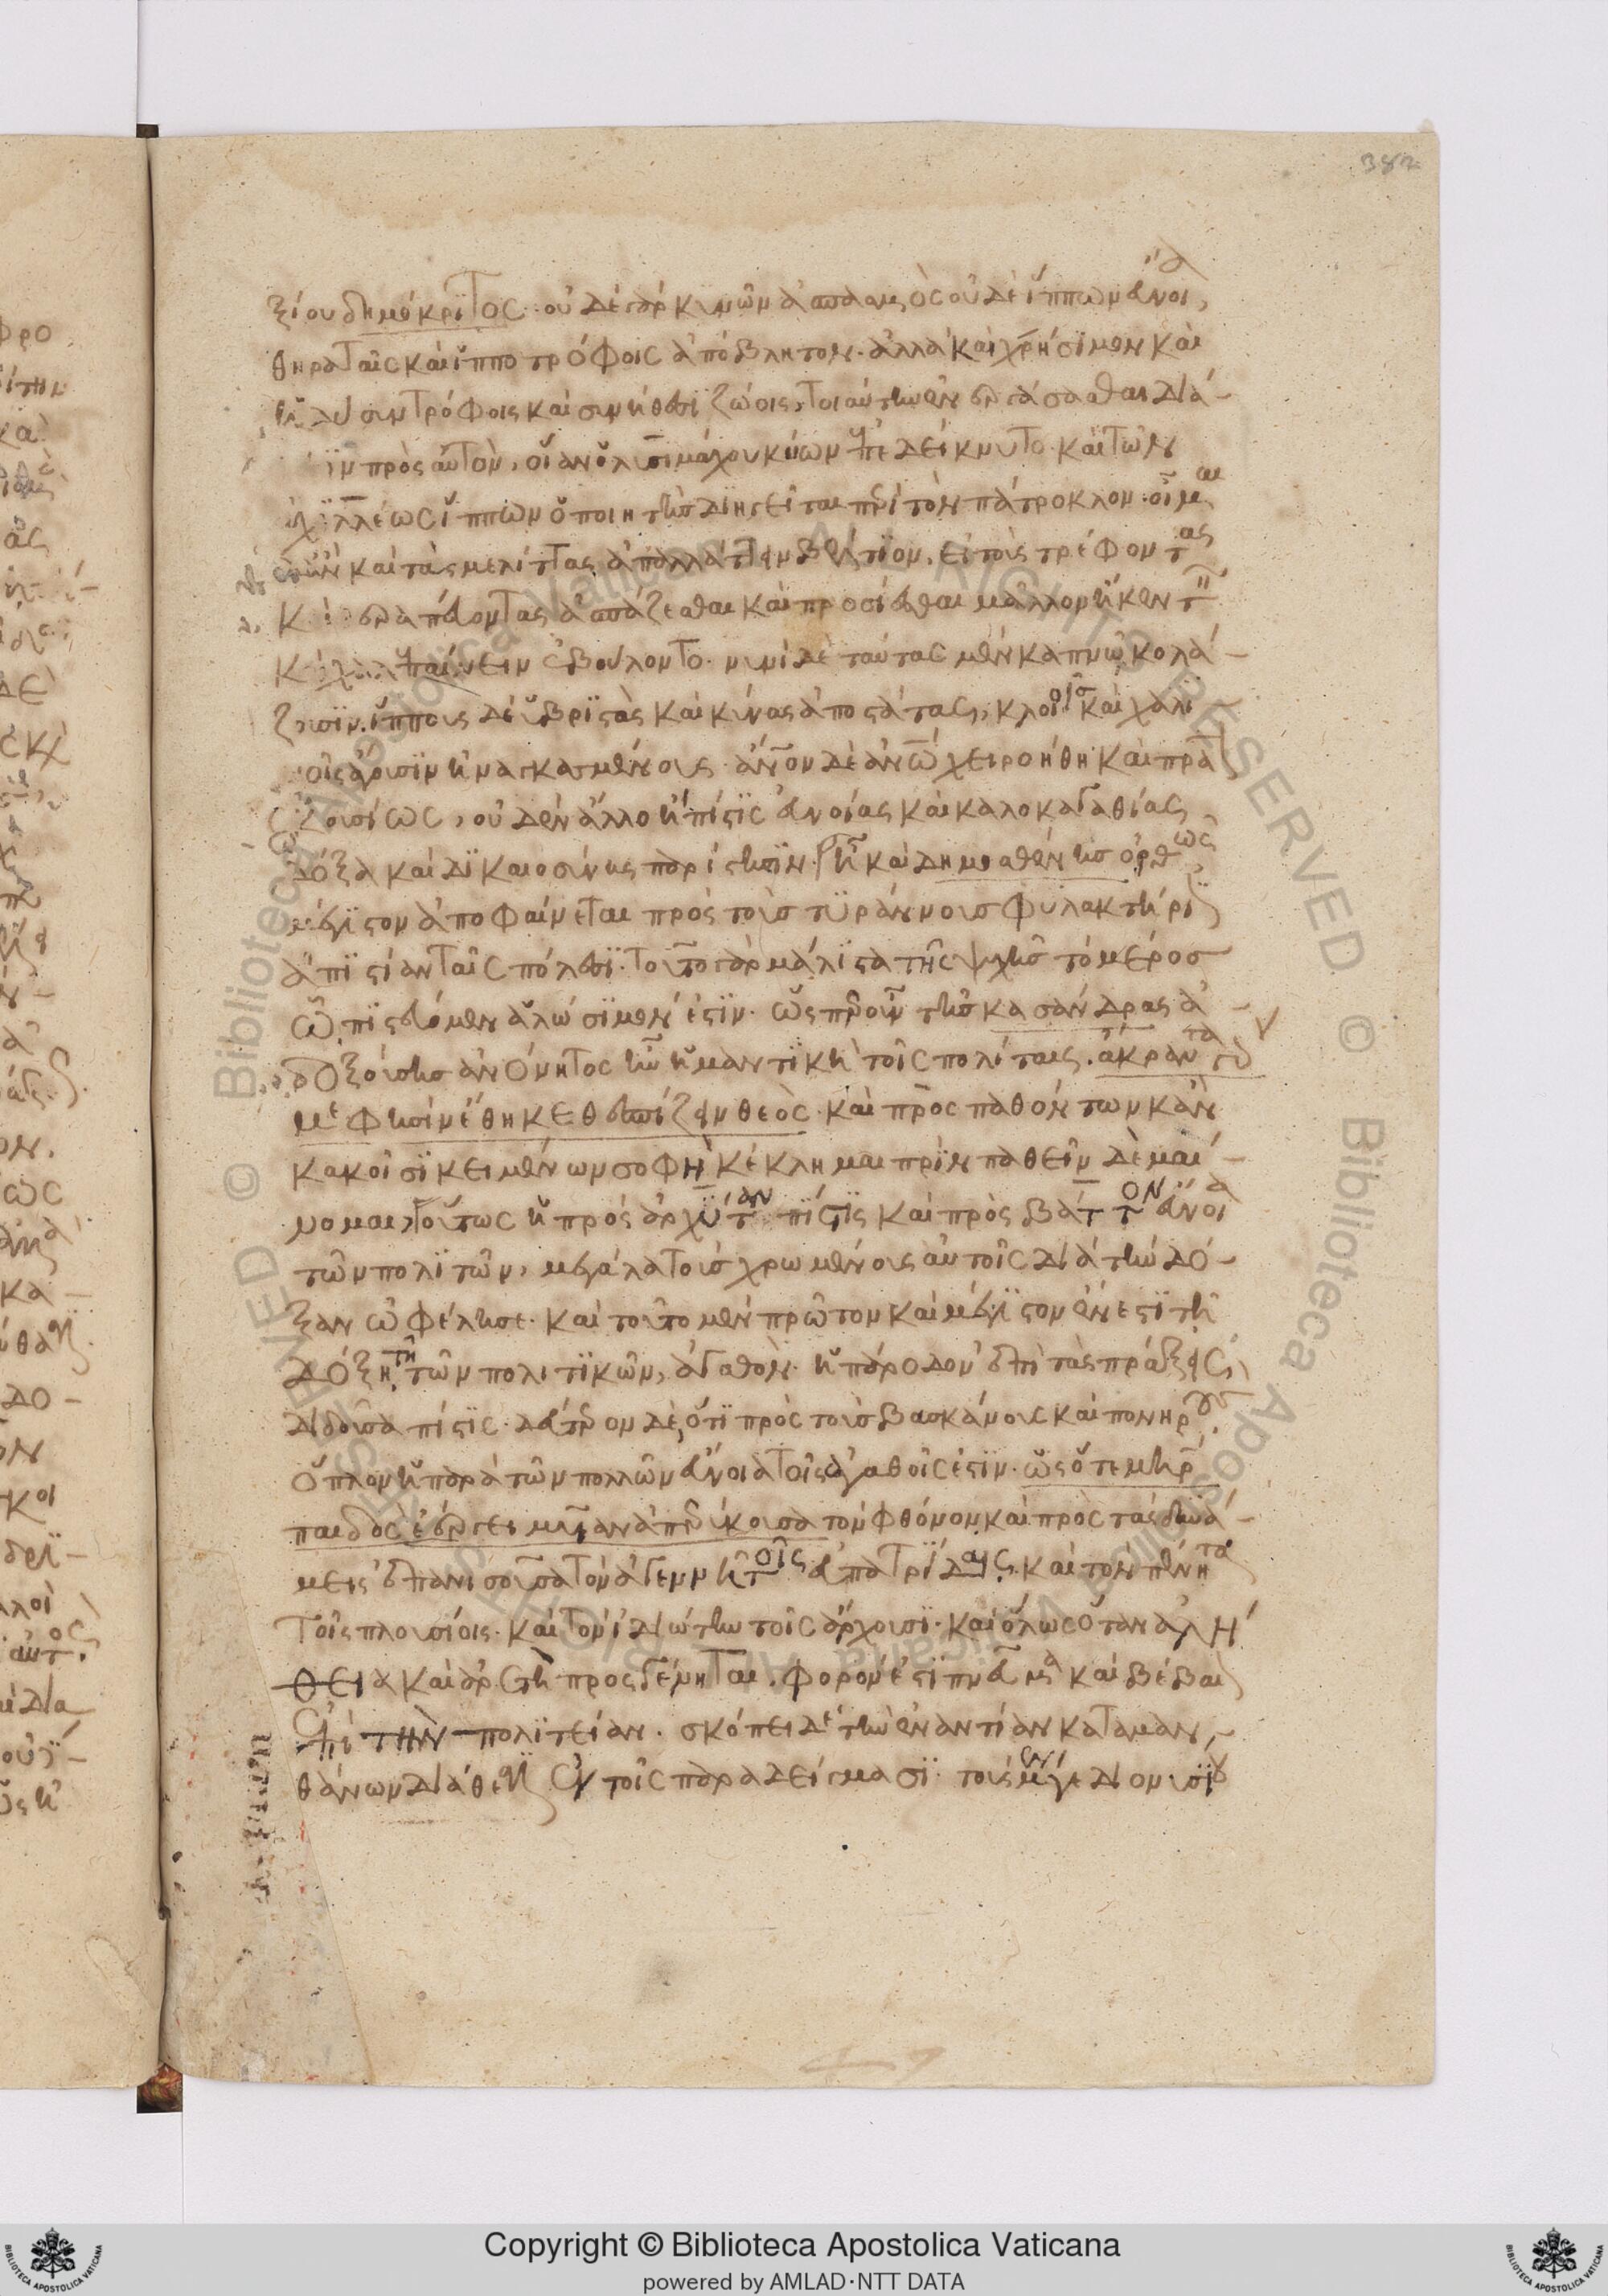 382
ξίου δημόκριτος· οὐδὲ γὰρ κυνῶν ἀσπασμὸς οὐδὲ ἵππων εὔνοια,
θηραταῖς καὶ ἱπποτρόφοις ἀπόβλητον. ἀλλὰ καὶ χρήσιμον καὶ
συντρόφοις καὶ συνήθεσι ζώοις, τοιαύτην ἐνεργάσασθαι διά-
πρὸς αὐτὸν, οἵαν ὁ λυσιμάχου κύων ἐπεδείκνυτο. καὶ τῶν
ἀχιλλέως ἵππων ὁ ποιητὴς διηγεῖται περὶ τὸν πάτροκλον. οἶμαι
καὶ τὰς μελίττας ἀπαλλάττειν βέλτιον, εἰ τοὺς τρέφοντας
ἀσπάζεσθαι καὶ προσίεσθαι μᾶλλον ἢ κεντ
ἐβούλοντο. νυνὶ δὲ ταύτας μὲν καπνῷ κολά-
ζουσιν. ἵππους δὲ ὑβριστὰς καὶ κύνας ἀποστάτας, κλοιοῖς καὶ χαλι-
νοῖς ἄγουσιν ἠναγκασμένους. ἄνον δὲ ἀνῶ χειροήθη καὶ πρᾶ
ἑκουσίως, οὐδὲν ἄλλο ἢ πίστις εὐνοίας καὶ καλοκαγαθίας
δόξα καὶ δικαιοσύνης παρίστησιν. ᾗ καὶ δημοσθένης ὀρθῶς
μέγιστον ἀποφαίνεται πρὸς τοὺς τυράννους φυλακτήρι
ἀπιστίαν ταῖς πόλεσι. τοῦτο γὰρ μάλιστα τῆς ψυχῆς τὸ μέρος
ᾧ πιστεύομεν ἁλώσιμόν ἐστιν. ὥσπερ οὖν τῆς κασάνδρας ἀ-
δοξούσης ἀνόνητος ἦν ἡ μαντικὴ τοῖς πολίταις. ἄκραντα γάρ
με φησὶν ἔθηκε θεσπίζειν θεὸς. καὶ πρὸς παθόντων κἀν
κακοῖσι κειμένων σοφὴ κέκλημαι πρὶν παθεῖν δὲ μαί-
νομαι, οὕτως ἡ πρὸς ἀρχύταν πίστις καὶ πρὸς βάττον εὔνοια
τῶν πολιτῶν, μεγάλα τοὺς χρωμένους αὐτοῖς διὰ τὴν δό-
ξαν ὠφέλησε. καὶ τοῦτο μὲν πρῶτον καὶ μέγιστον ἔνεστι τῇ
δόξῃ τῇ τῶν πολιτικῶν, ἀγαθὸν. ἡ πάροδον ἐπὶ τὰς πράξεις,
διδοῦσα πίστις. δεύτερον δὲ, ὅτι πρὸς τοὺς βασκάνους καὶ πονηρούς
ὅπλον ἡ παρὰ τῶν πολλῶν εὔνοια τοῖς ἀγαθοῖς ἐστιν. ὡς ὅτε μηρ
παιδὸς ἐέργει μυῖαν ἀπερύκουσα τὸν φθόνον καὶ πρὸς τὰς δυνά-
μεις ἐπανισοῦσα τὸν ἀγεννῆ τοῖς εὐπατρίδαις. καὶ τὸν πένητα
τοῖς πλουσίοις. καὶ τὸν ἰδιώτην τοῖς ἄρχουσι. καὶ ὅλως ὅταν ἀλή-
θεια καὶ ἀρετὴ προσγένηται. φορόν ἐστι πνεῦμα καὶ βέβαι
ἐπὶ τὴν πολιτείαν. σκόπει δὲ τὴν ἐναντίαν καταμαν-
θάνων διάθεσιν ἐν τοῖς παραδείγμασι. τοὺς μὲν γε διονυσίου
Copyright © Biblioteca Apostolica Vaticana
powered by AMLAD·NTT DATA